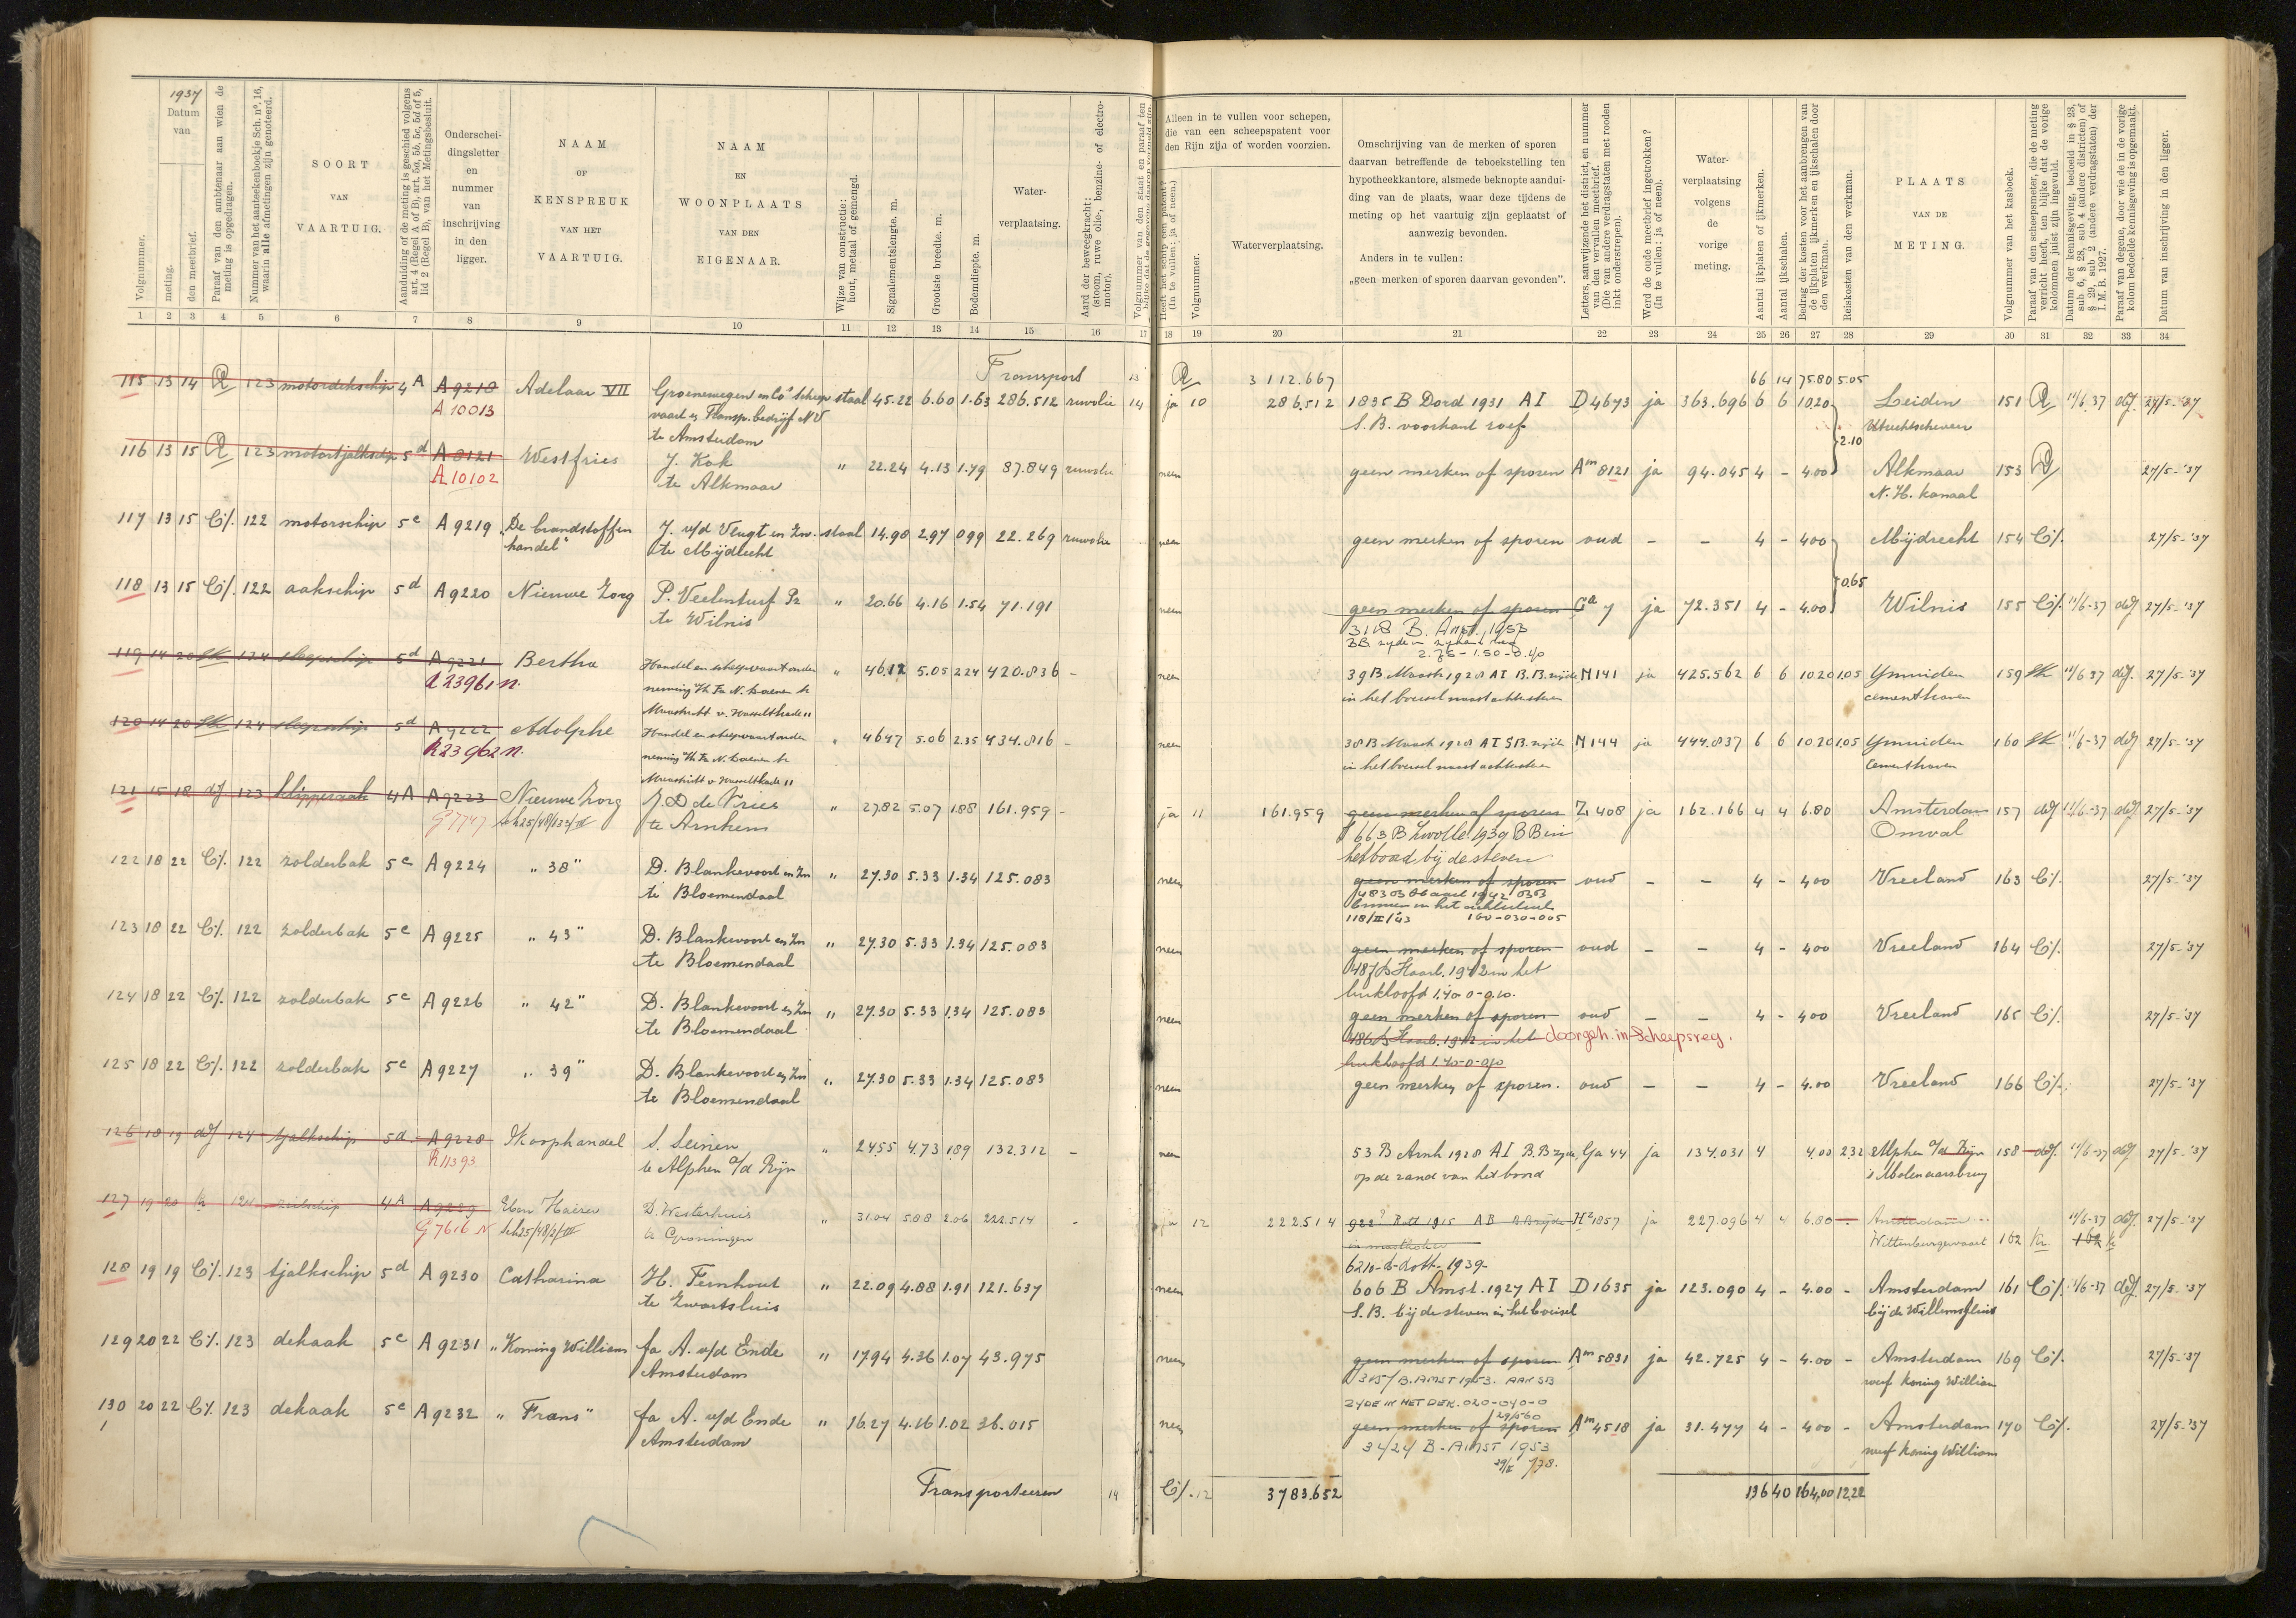 1937
Datum van
Volgnummer.
meting.
den meetbrief.
Paraaf van den ambtenaar aan wien de meting is opgedragen.
Nummer van het aanteekenboekje Sch. nº. 16, waarin alle afmetingen zijn genoteerd.
SOORT VAN VAARTUIG.
Aanduiding of de meting is geschied volgens art. 4 (Regel A of B), art. 5a, 5b, 5c, 5d of 5, lid 2 (Regel B), van het Metingsbesluit.
Onderscheidingsletter en nummer van inschrijving in den ligger.
NAAM OF KENSPREUK VAN HET VAARTUIG.
NAAM EN WOONPLAATS VAN DEN EIGENAAR.
Wijze van constructie: hout, metaal of gemengd.
Signalementslengte. m.
Grootste breedte. m.
Bodemdiepte. m.
Waterverplaatsing.
Aard der beweegkracht: (stoom, ruwe olie-, benzine- of electromotor).
Alleen in te vullen voor schepen, die van een scheepspatent voor den Rijn zijn of worden voorzien.
Heeft het schip een patent? (In te vullen: ja of neen.)
Volgnummer.
Waterverplaatsing.
Omschrijving van de merken of sporen daarvan betreffende de teboekstelling ten hypotheekkantore, alsmede beknopte aanduiding van de plaats, waar deze tijdens de meting op het vaartuig zijn geplaatst of aanwezig bevonden.
Anders in te vullen:
„geen merken of sporen daarvan gevonden”.
Letters, aanwijzende het district, en nummer van den vervallen meetbrief. (Die van andere verdragstaten met rooden inkt onderstrepen).
Werd de oude meetbrief ingetrokken? (In te vullen: ja of neen).
Waterverplaatsing volgens de vorige meting.
Aantal ijkplaten of ijkmerken.
Aantal ijkschalen.
Bedrag der kosten voor het aanbrengen van de ijkplaten ijkmerken en ijkschalen door den werkman.
Reiskosten van den werkman.
PLAATS VAN DE METING.
Volgnummer van het kasboek.
Paraaf van den scheepsmeter, die de meting verricht heeft, ten blijke dat de vorige kolommen juist zijn ingevuld.
Datum der kennisgeving, bedoeld in § 23, sub 6, § 28, sub 4 (andere districten) of § 29, sub 2 (andere verdragstaten) der I. M. B. 1927.
Paraaf van degene, door wie de in de vorige kolom bedoelde kennisgeving is opgemaakt.
Datum van inschrijving in den ligger.
1 2 3 4 5 6 7 8 9 10 11 12 13 14 15 16 17 18 19 20 21 22 23 24 25 26 27 28 29 30 31 32 33 34
Transport 13 3112.667 66 14 75.80 5.05
115 13 14 123 motordekschip 4A A9218 Adelaar VII Groenewegen en Co's Scheep staal 45.22 6.60 1.63 286.512 ruwolie 14 ja 10 286.512 1835 B Dord 1931 AI D4673 ja 363.696 6 6 10.20 Leiden 151 11/6.37 27/5-'37
A 10013 vaart en Transp. bedrijf NV S.B. voorkant roef Utrechtscheveer
te Amsterdam
2.10
116 13 15 123 motortjalkschip 5d A8121 Westfries J. Kok " 22.24 4.13 1.79 87.849 ruwolie neen geen merken of sporen Am 8121 ja 94.045 4 - 4.00 Alkmaar 153 27/5-'37
A 10102 te Alkmaar N.H. kanaal
117 13 15 122 motorschip 5c A9219 „De brandstoffen J. v/d Vlugt en Zn. staal 14.98 2.97 0.99 22.269 ruwolie neen geen merken of sporen oud - - 4 - 4.00 Mijdrecht 154 27/5-'37
handel" te Mijdrecht
0.65
118 13 15 122 aakschip 5d A9220 Nieuwe Zorg P. Veelenturf Pz " 20.66 4.16 1.54 71.191 neen geen merken of sporen Ga 7 ja 72.351 4 - 4.00 Wilnis 155 11/6-37 27/5-'37
te Wilnis 3118 B. Amst. 1953
2.75 - 1.50 - 0.40
119 14 20 124 sleepschip 5d A9221 Bertha Handel en scheepvaartonder " 46.12 5.05 2.24 420.836 - neen 39B Maastr 1928 AI B.B. zijde N141 ja 425.562 6 6 10.20 1.05 IJmuiden 159 11/6 37 27/5-'37
R23961 N. neming in het boeisel naast achtersteven cementhaven
Maastricht v. Hasseltkade 11
120 14 20 124 sleepschip 5d A9222 Adolphe Handel en scheepvaartonder " 46.47 5.06 2.35 434.816 - neen 38B Maastr 1928 AI SB. zijde N144 ja 444.837 6 6 10.20 1.05 IJmuiden 160 11/6-37 27/5-'37
R23962 N. neming in het boeisel naast achtersteven Cementhaven
Maastricht v. Hasseltkade 11
121 15 18 123 klipperaak 4A A9223 Nieuwe Zorg J. D. de Vries " 27.82 5.07 1.88 161.959 - ja 11 161.959 geen merken of sporen Z 408 ja 162.166 4 4 6.80 Amsterdam 157 11/6-37 27/5-'37
G7747 te Arnhem 663 B Zwolle 1939 BB in Omval
het boord bij de steven
122 18 22 122 zolderbak 5c A9224 „ 38" D. Blankevoort en Zn " 27.30 5.33 1.34 125.083 neen geen merken of sporen oud - - 4 - 4.00 Vreeland 163 27/5-'37
te Bloemendaal 1942 BB
118/II/43 1.60-0.30-0.05
123 18 22 122 zolderbak 5c A9225 „ 43" D. Blankevoort en Zn " 27.30 5.33 1.34 125.083 neen geen merken of sporen oud - - 4 - 4.00 Vreeland 164 27/5-'37
te Bloemendaal 487 B Haarl. 1942 in het
luikhoofd 1.40-0-0.10.
124 18 22 122 zolderbak 5c A9226 „ 42" D. Blankevoort en Zn " 27.30 5.33 1.34 125.083 neen geen merken of sporen oud - - 4 - 4.00 Vreeland 165 27/5-'37
te Bloemendaal 486 B Haarl. 1942 in het doorgeh. in Scheepsreg.
luikhoofd 1.40-0-0.10
125 18 22 122 zolderbak 5c A9227 „ 39" D. Blankevoort en Zn " 27.30 5.33 1.34 125.083 neen geen merken of sporen. oud - - 4 - 4.00 Vreeland 166 27/5-'37
te Bloemendaal
126 18 19 124 tjalkschip 5d A9228 Skorphandel S. Seinen " 24.55 4.73 1.89 132.312 - neen 53 B Arnh 1928 AI B.B zijde Ga 44 ja 134.031 4 4.00 2.32 Alphen a/d Rijn 158 11/6-37 27/5-'37
R11393 te Alphen a/d Rijn op de rand van het boord 's Molenaarsbrug
127 19 20 124 zeilschip 4A A9229 Eben Haezer D. Westerhuis " 31.04 5.08 2.06 222.514 - ja 12 222.514 922 Rott 1915 AB B.B zijde H2 1857 ja 227.096 4 4 6.80 - Amsterdam 11/6-37 27/5-'37
G7616 N te Groningen in mastkoker Wittenburgervaart 162
6210-B-Rott-1939-
128 19 19 123 tjalkschip 5d A9230 Catharina H. Fernhout " 22.09 4.88 1.91 121.637 neen 606 B Amst. 1927 AI D1635 ja 123.090 4 - 4.00 - Amsterdam 161 11/6-37 27/5-'37
te Zwartsluis S.B. bij de steven in het boeisel bij de Willemsluis
129 20 22 123 dekaak 5c A9231 „Koning Willem fa A. v/d Ende " 17.94 4.36 1.07 43.975 neen geen merken of sporen Am 5831 ja 42.725 4 - 4.00 - Amsterdam 169 27/5-'37
Amsterdam 3157 B. AMST 1953. AAN SB werf Koning Willem
ZYDE IN HET DEK. 020-040-0
130 20 22 123 dekaak 5c A9232 „ Frans" fa A. v/d Ende " 16.27 4.16 1.02 36.015 neen geen merken of sporen Am 4518 ja 31.477 4 - 4.00 - Amsterdam 170 27/5-'37
Amsterdam 3424 B - AMST 1953 werf Koning Willem
Transporteeren 14 12 3783.652 136 40 164.00 12.22